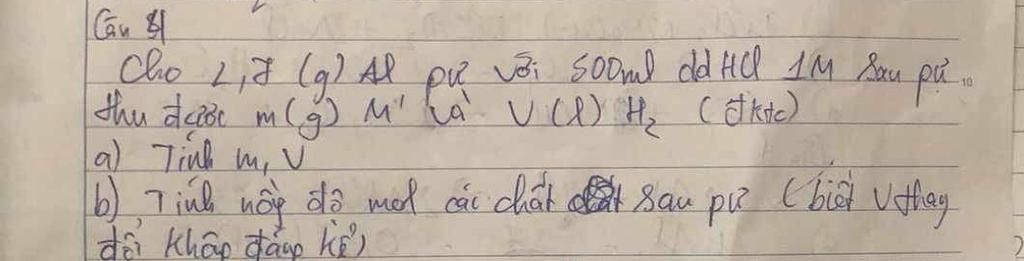 Câu 4
Cho 2,7 (g) Al pứ với 500ml dd HCl 1M sau pứ
thu được m(g) M' và V(l) H₂ (đktc)
a) Tính m, V
b) Tính nồg độ mol các chất sau pứ (biết V thay
đổi khôg đág kể)